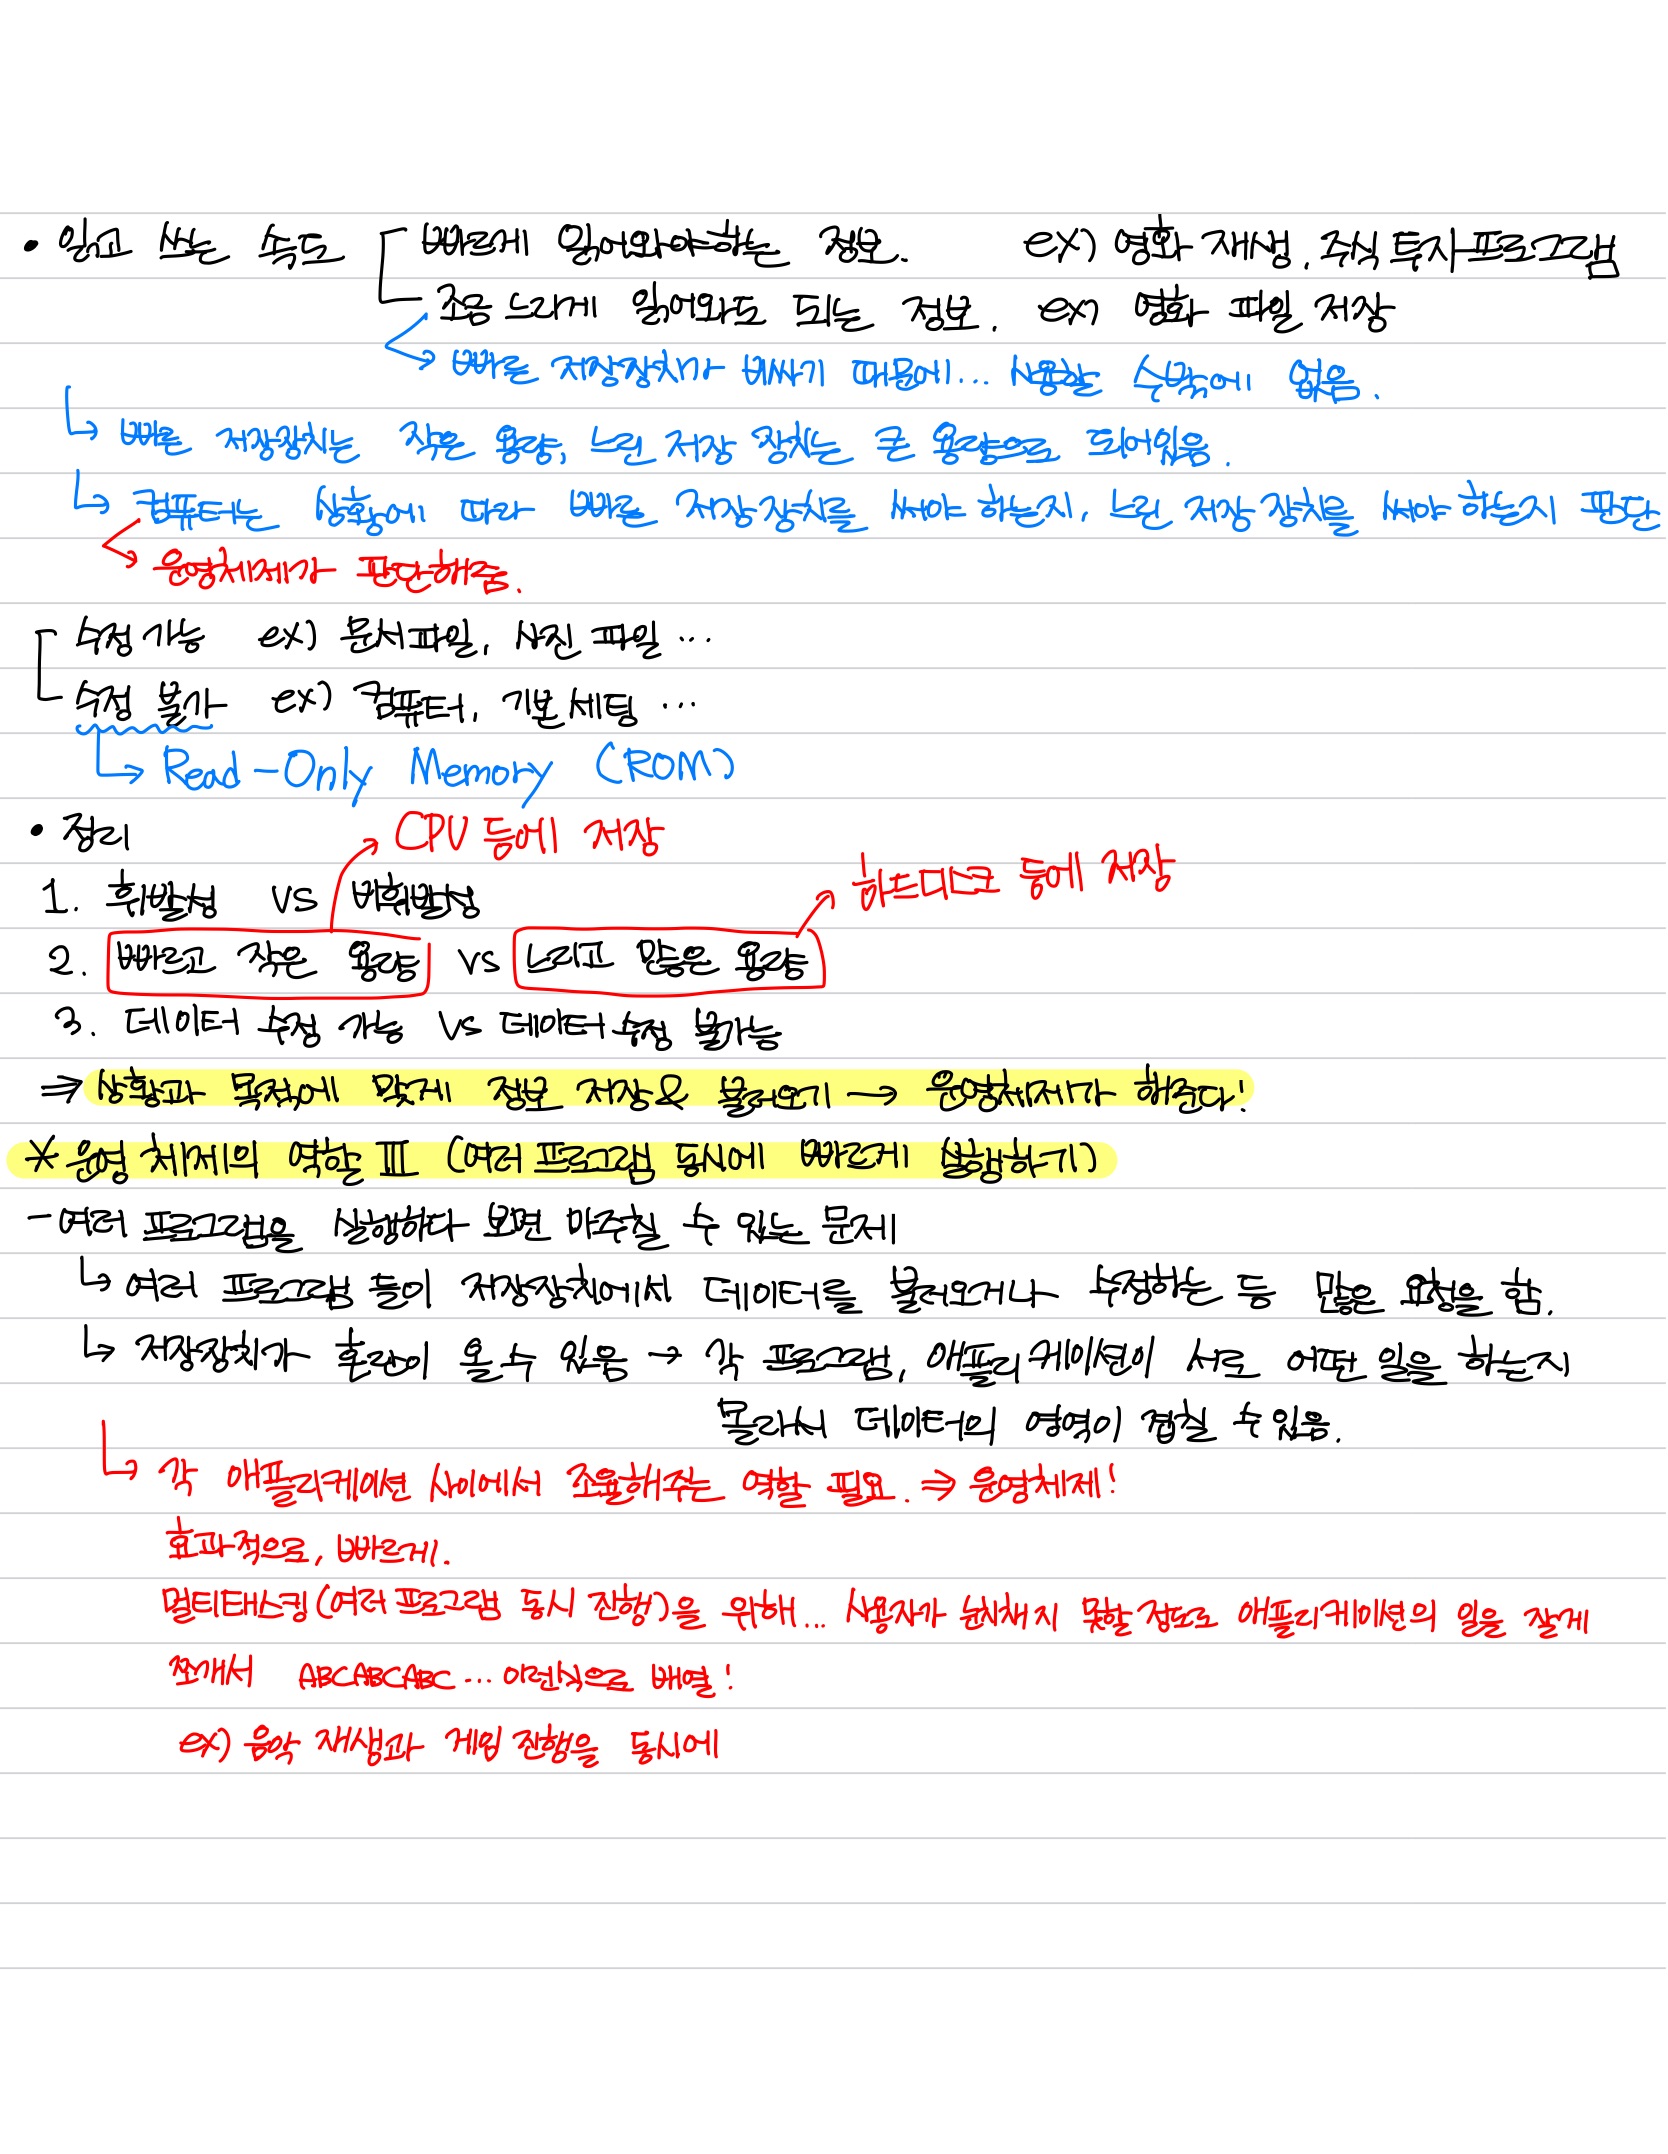 • 읽고 쓰는 속도 빠르게 읽어와야하는 정보. ex) 영화 재생, 주식 투자 프로그램
조금 느리게 읽어와도 되는 정보. ex) 영화 파일 저장
↳ 빠른 저장장치가 비싸기 때문에... 사용할 수밖에 없음.
↳ 빠른 저장장치는 작은 용량, 느린 저장 장치는 큰 용량으로 되어있음.
↳ 컴퓨터는 상황에 따라 빠른 저장장치를 써야 하는지, 느린 저장 장치를 써야 하는지 판단
↳ 운영체제가 판단해줌.
수정 가능 ex) 문서파일, 사진 파일 ...
수정 불가 ex) 컴퓨터, 기본 세팅 ...
↳ Read-Only Memory (ROM)
• 정리
CPU 등에 저장
1. 휘발성 vs 비휘발성
하드디스크 등에 저장
2. 빠르고 작은 용량 vs 느리고 많은 용량
3. 데이터 수정 가능 vs 데이터 수정 불가능
⇒ 상황과 목적에 맞게 정보 저장 & 불러오기 → 운영체제가 해준다!
* 운영 체제의 역할 III (여러 프로그램 동시에 빠르게 실행하기)
- 여러 프로그램을 실행하다 보면 마주칠 수 있는 문제
↳ 여러 프로그램 들이 저장장치에서 데이터를 불러오거나 수정하는 등 많은 요청을 함.
↳ 저장장치가 혼란이 올 수 있음 → 각 프로그램, 애플리케이션이 서로 어떤 일을 하는지
몰라서 데이터의 영역이 겹칠 수 있음.
↳ 각 애플리케이션 사이에서 조율해주는 역할 필요. ⇒ 운영체제!
효과적으로, 빠르게.
멀티태스킹 (여러 프로그램 동시 진행)을 위해... 사용자가 눈치채지 못할 정도로 애플리케이션의 일을 잘게
쪼개서 ABCABCABC ... 이런식으로 배열!
ex) 음악 재생과 게임 진행을 동시에